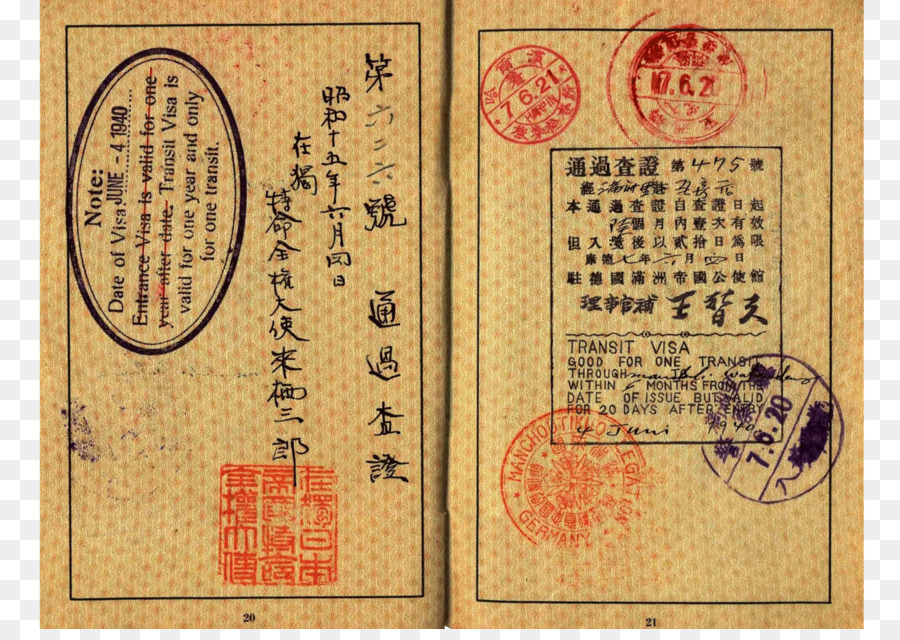 Note:
Date of Visa JUNE - 4 1940
Entrance Visa is valid for one
year after date. Transit Visa is
valid for one year and only
for one transit.
第六二六號 通過査證
昭和十五年六月四日
在獨
特命全權大使来栖三郎
20
7.6.21
HARPIN
7.6.21
通過查證 第475號
本通過查證自查證日起
個月內壹次有效
但入境後以貳拾日為限
康德七年六月四日
駐德國滿洲帝國公使館
理事官補 王替夫
TRANSIT VISA
GOOD FOR ONE TRANSIT
THROUGH
WITHIN 6 MONTHS FROM THE
DATE OF ISSUE BUT VALID
FOR 20 DAYS AFTER ENTRY
4 Juni 1940
7.6.20
MANCHOUTIKUO LEGATION
GERMANY
21